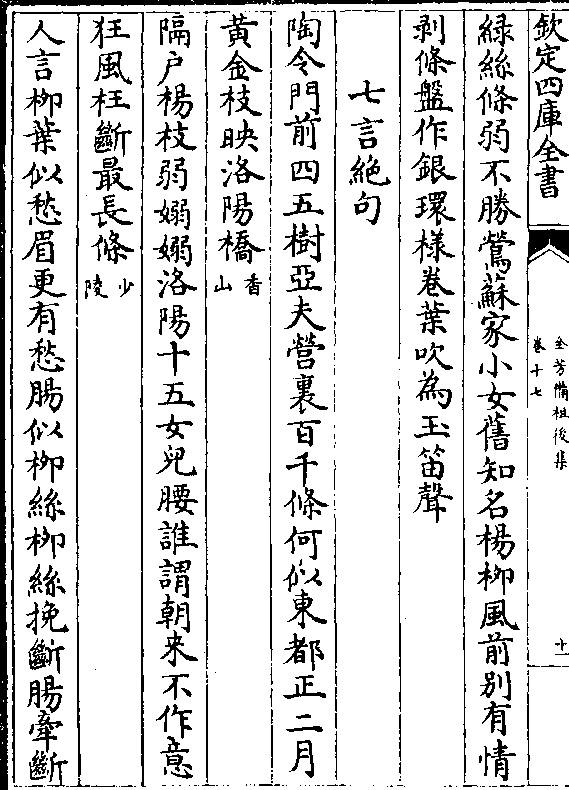 欽定四庫全書
全芳備祖後集
卷十七
十
緑絲條弱不勝鶯蘇家小女舊知名楊栁風前别有情
剥條盤作銀環様巻葉吹為玉笛聲
七言絶句
陶令門前四五樹亞夫營裏百千條何似東都正二月
黄金枝映洛陽橋香山
隔户楊枝弱嫋嫋洛陽十五女兒腰誰謂朝来不作意
狂風枉斷最長條少陵
人言栁葉似愁眉更有愁腸似栁絲栁絲挽斷腸牽斷